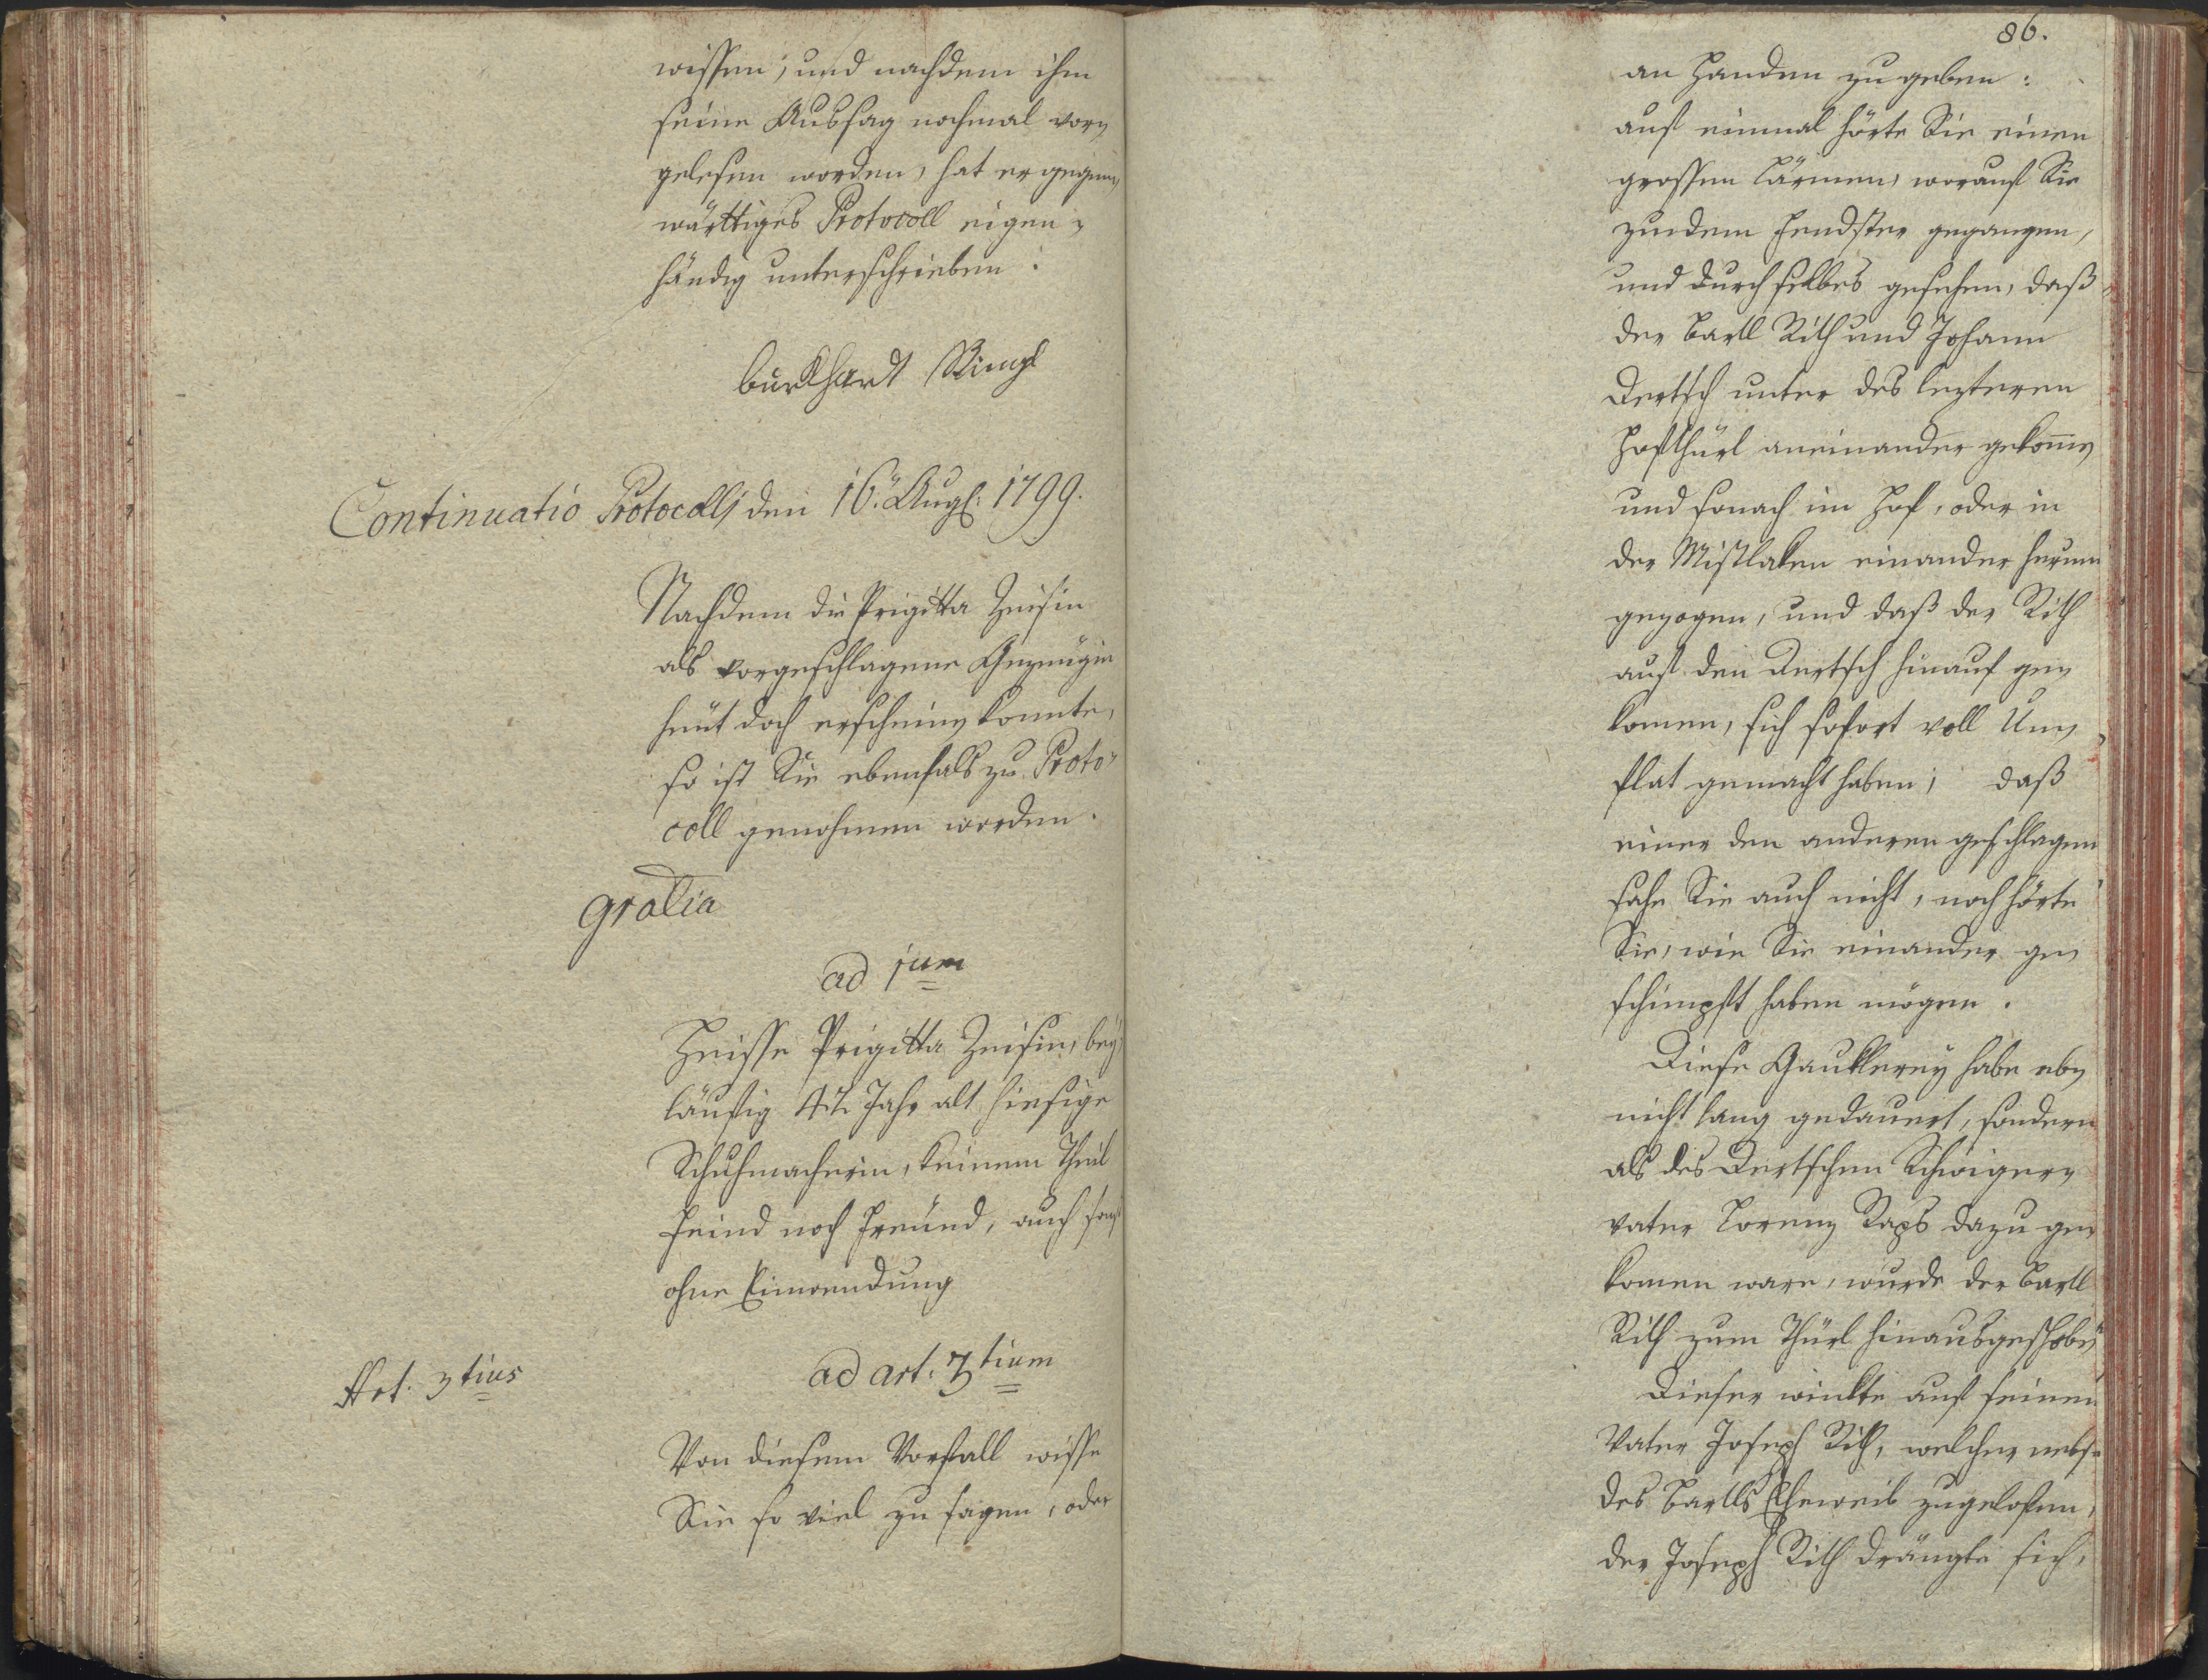 wissen; und nachdem ihm
seine Aussag nochmal vor„
gelesen worden, hat er gegen„
wärttiges Protocoll eigen„
händig unterschrieben:
burkhardt
Continuatio Protocolli den 16. Augt: 1799.
Nachdem die Prigitta Zeisin
als vorgeschlagene Gezeugin
heüt doch erscheinen konnte,
so ist Sie ebenfals zu Proto„
coll genohmen worden.
Gralia
ad 1um
Heisse Prigitta Zeisin, bey„
läufig 42 Jahr alt hiesige
Schuhmacherin, keinem Theil
feind noch freund, auch sonst
ohne Einwendung
Art. 3tius
ad art: 3tium
Von diesem Vorfall wisse
Sie so viel zu sagen, oder
86.
an Handen zu geben:
auf einmal hörte Sie einen
grossen Lärmen, worauf Sie
zu dem Fendster gegangen,
und durch selbes gesehen, daß
der Bartl Rith und Johann
Dertsch unter des lezteren
Hofthürl aneinander gekomen
und sonach im Hof, oder in
der Mistlaken einander herum
gezogen, und daß der Rith
auf den Dertsch hinauf ge„
komen, sich sofort voll Un„
flat gemacht haben; daß
einer den anderen geschlagen
sahe Sie auch nicht, noch hörte
Sie, wie Sie einander ge„
schimpft haben mögen.
Diese Gauklerey habe aber
nicht lang gedauert, sondern
als des Dertschen Schwiger„
vater Lorenz Raps dazu ge„
komen ware, wurde der Bartl
Rith zum Thürl hinausgeschoben
Dieser winkte auf seinen
Vater Joseph Rith, welcher nebst
des Bartls Eheweib zugelofen,
der Joseph Rith drängte sich,